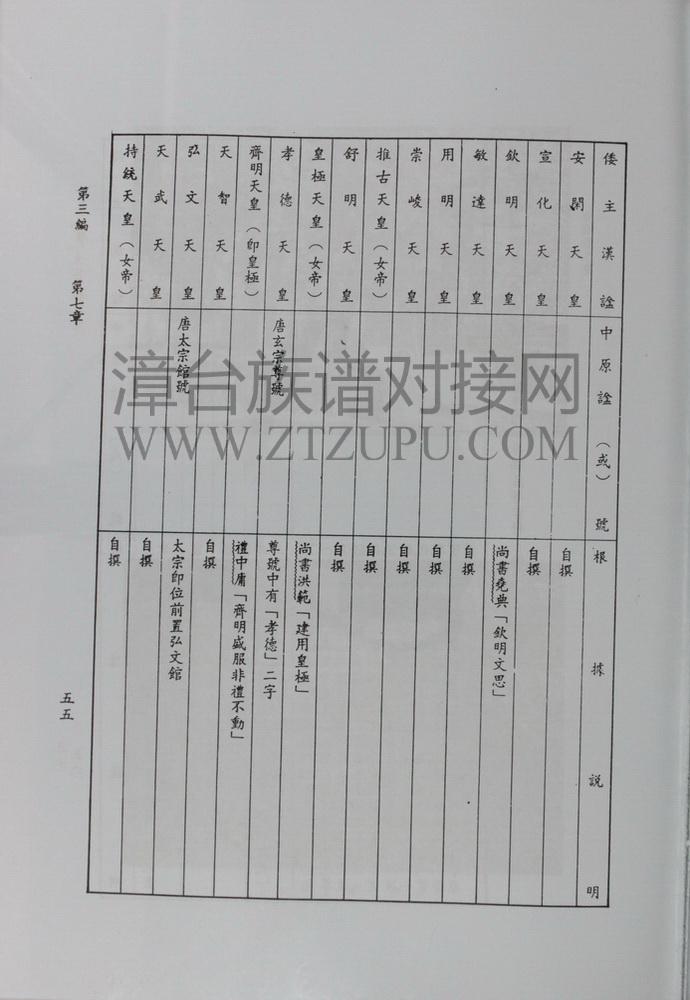 倭主漢諡 中原諡（或）號 根據説明
安閑天皇 自撰
宣化天皇 自撰
欽明天皇 尚書堯典「欽明文思」
敏達天皇 自撰
用明天皇 自撰
崇峻天皇 自撰
推古天皇（女帝） 自撰
舒明天皇 自撰
皇極天皇（女帝） 尚書洪範「建用皇極」
孝德天皇 唐玄宗尊號 尊號中有「孝德」二字
齊明天皇（即皇極） 禮中庸「齊明盛服非禮不動」
天智天皇 自撰
弘文天皇 唐太宗館號 太宗即位前置弘文館
天武天皇 自撰
持統天皇（女帝） 自撰
第三編 第七章
五五
漳台族谱对接网
WWW.ZTZUPU.COM